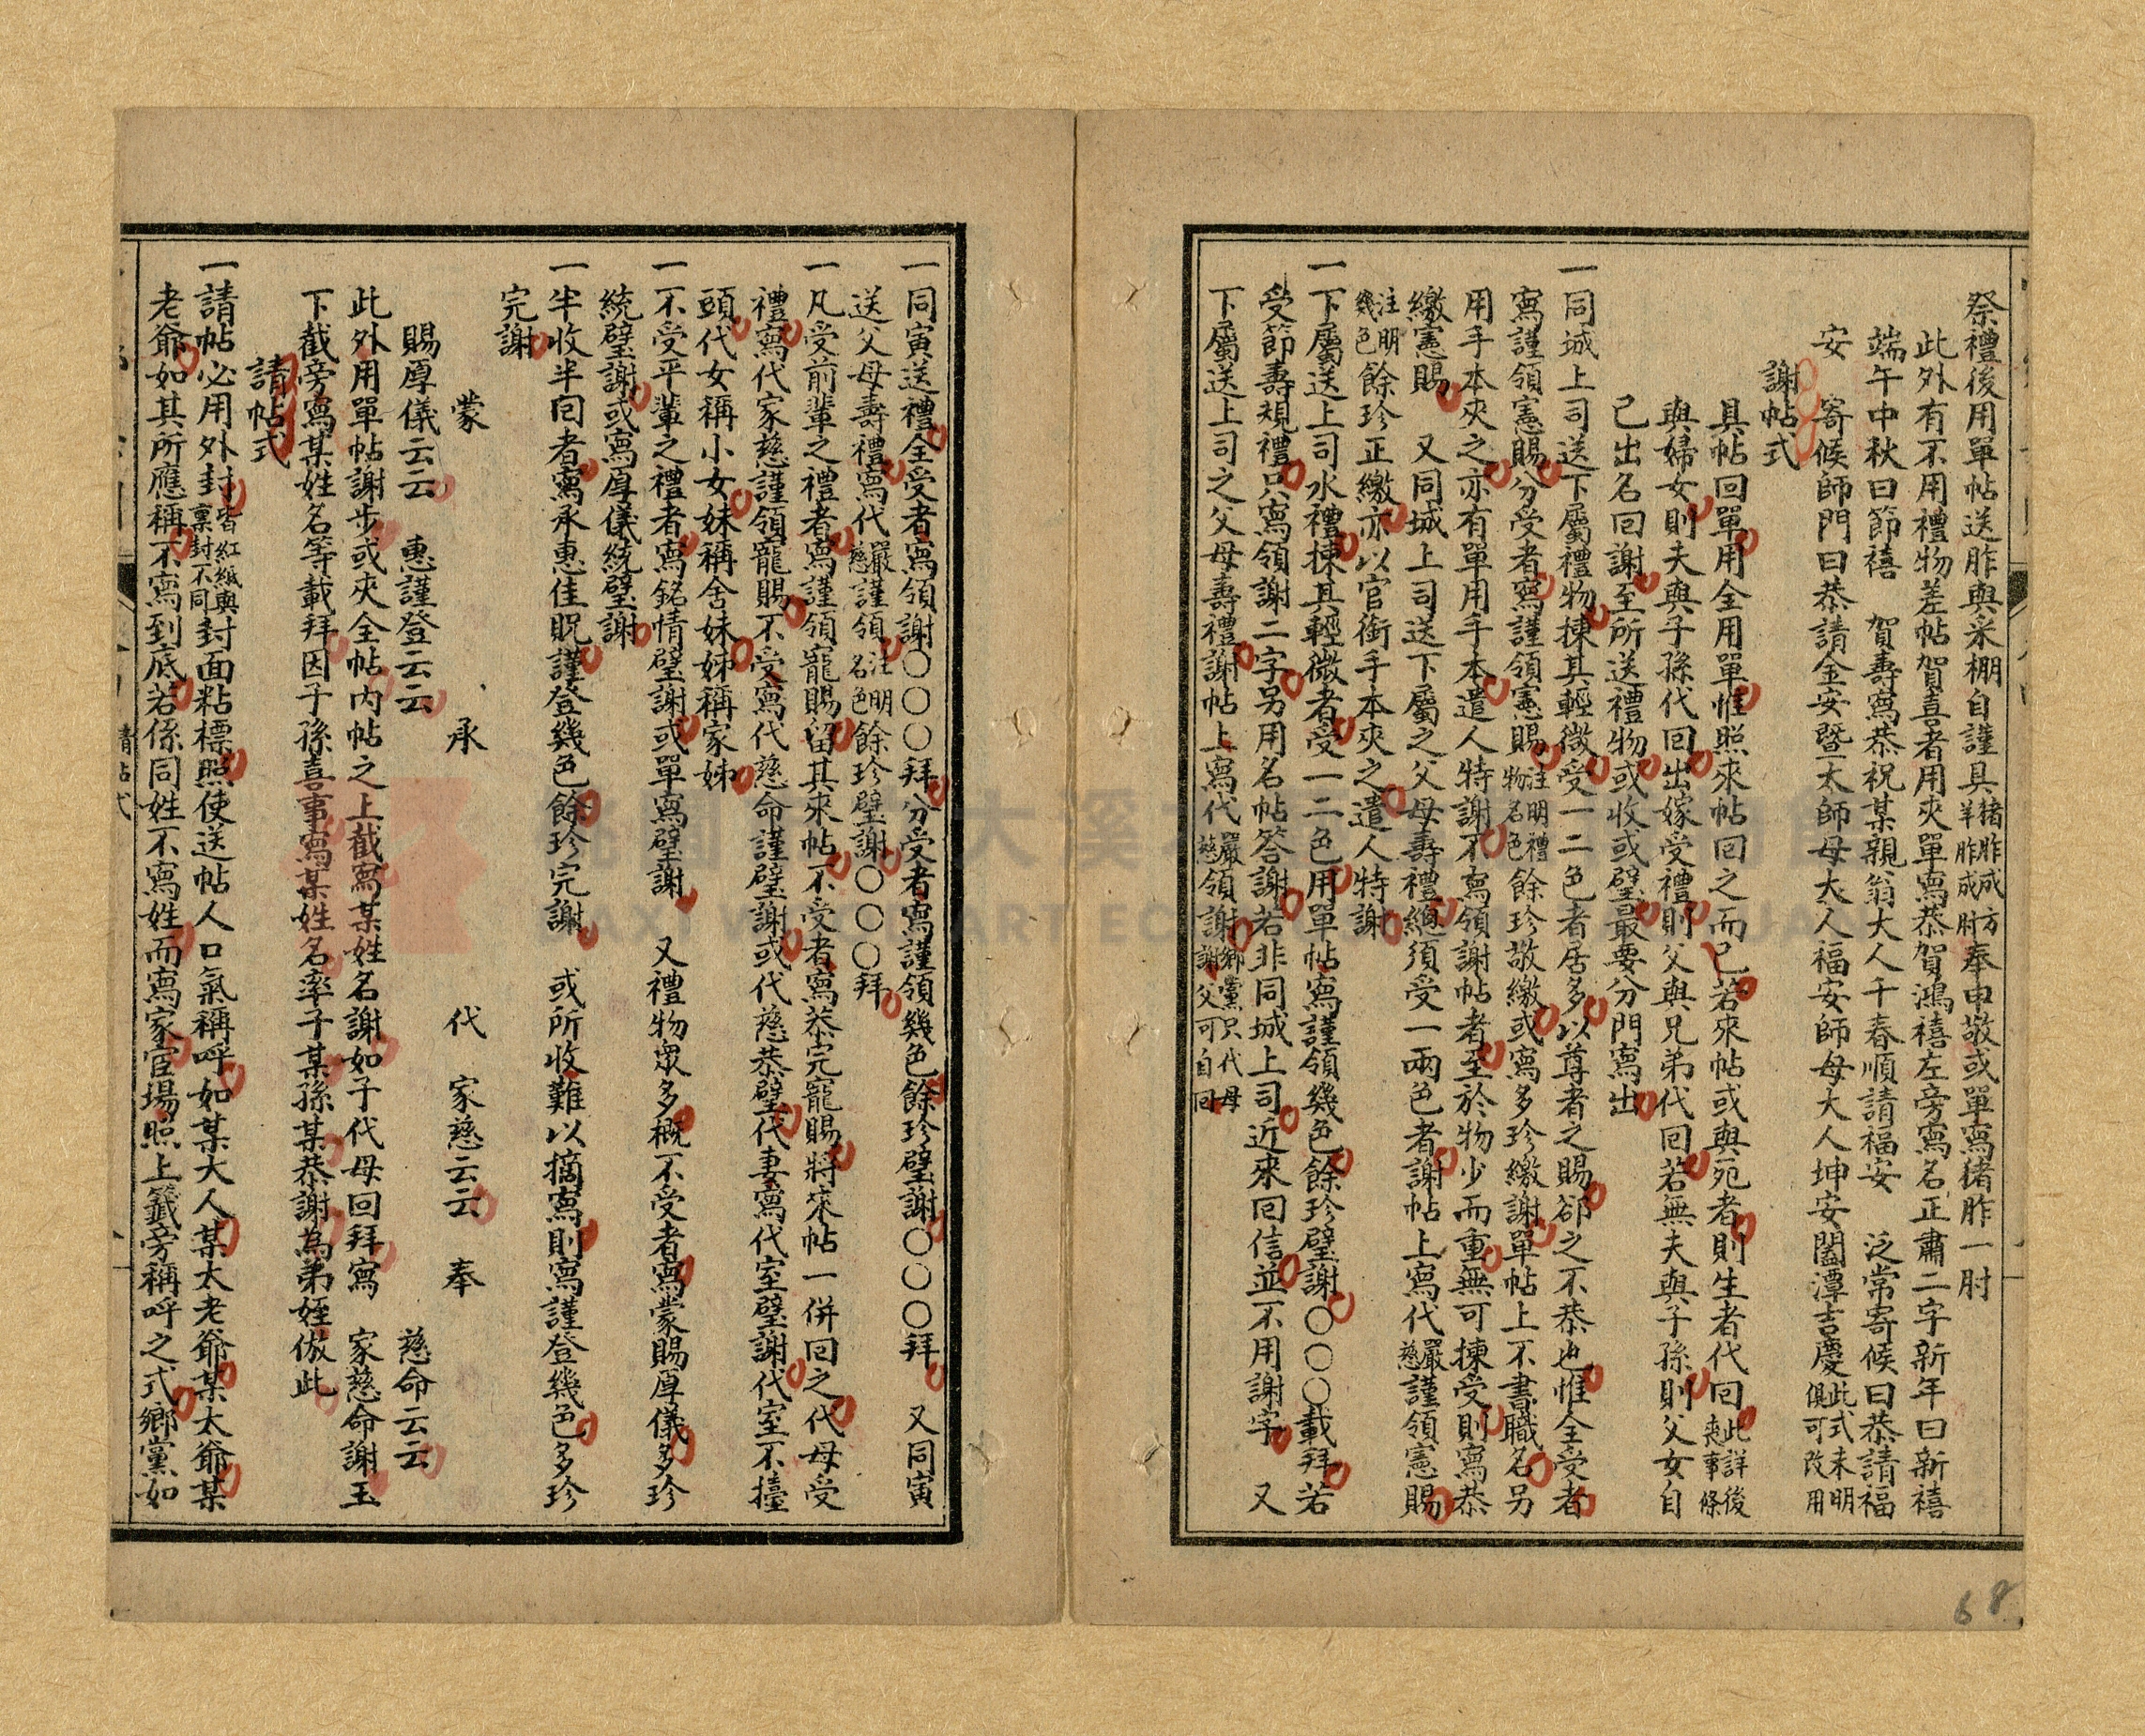 祭禮後用單帖送胙與采棚自謹具猪胙成方羊胙成肘奉申敬或單寫猪胙一肘
此外有不用禮物差帖賀喜者用夾單寫恭賀鴻禧左旁寫名正肅二字新年曰新禧
端午中秋曰節禧 賀壽寫恭祝某親翁大人千春順請福安 泛常寄候曰恭請福
安 寄候師門曰恭請金安暨太師母大人福安師母大人坤安闔潭吉慶此式未明俱可改用
謝帖式
具帖回單用全用單惟照來帖回之而已若來帖或與死者則生者代回此詳後喪事條
與婦女則夫與子孫代回出嫁受禮則父與兄弟代回若無夫與子孫則父女自
己出名回謝至所送禮物或收或璧最要分門寫出
一同城上司送下屬禮物揀其輕微受一二色者居多以尊者之賜卻之不恭也惟全受者
寫謹領憲賜分受者寫謹領憲賜注明禮物名色餘珍敬繳或寫多珍繳謝單帖上不書職名另
用手本夾之亦有單用手本遣人特謝不寫領謝帖者至於物少而重無可揀受則寫恭
繳憲賜 又同城上司送下屬之父母壽禮總須受一兩色者謝帖上寫代嚴慈謹領憲賜
注明幾色餘珍正繳亦以官銜手本夾之遣人特謝
一下屬送上司水禮揀其輕微者受一二色用單帖寫謹領幾色餘珍璧謝〇〇〇載拜若
受節壽規禮只寫領謝二字另用名帖答謝若非同城上司近來回信並不用謝字 又
下屬送上司之父母壽禮謝帖上寫代嚴慈領謝鄉黨只代母謝父可自回
一同寅送禮全受者寫領謝〇〇〇拜分受者寫謹領幾色餘珍璧謝〇〇〇拜 又同寅
送父母壽禮寫代嚴慈謹領注明名色餘珍璧謝〇〇〇拜
一凡受前輩之禮者寫謹領寵賜留其來帖不受者寫恭完寵賜將來帖一併回之代母受
禮寫代家慈謹領寵賜不受寫代慈命謹璧謝或代慈恭璧代妻寫代室璧謝代室不擡
頭代女稱小女妹稱舍妹姊稱家姊
一不受平輩之禮者寫銘情璧謝或單寫璧謝 又禮物衆多概不受者寫蒙賜厚儀多珍
統璧謝或寫厚儀統璧謝
一半收半回者寫承惠佳貺謹登幾色餘珍完謝 或所收難以摘寫則寫謹登幾色多珍
完謝
蒙 承 代 家慈云云 奉
賜厚儀云云 惠謹登云云 慈命云云
此外用單帖謝步或夾全帖内帖之上截寫某姓名謝如子代母回拜寫 家慈命謝玉
下截旁寫某姓名等載拜因子孫喜事寫某姓名率子某孫某恭謝為弟姪倣此
請帖式
一請帖必用外封皆紅紙與稟封不同封面粘標照使送帖人口氣稱呼如某大人某太老爺某太爺某
老爺如其所應稱不寫到底若係同姓不寫姓而寫家宦場照上籤旁稱呼之式鄉黨如
請帖式
68